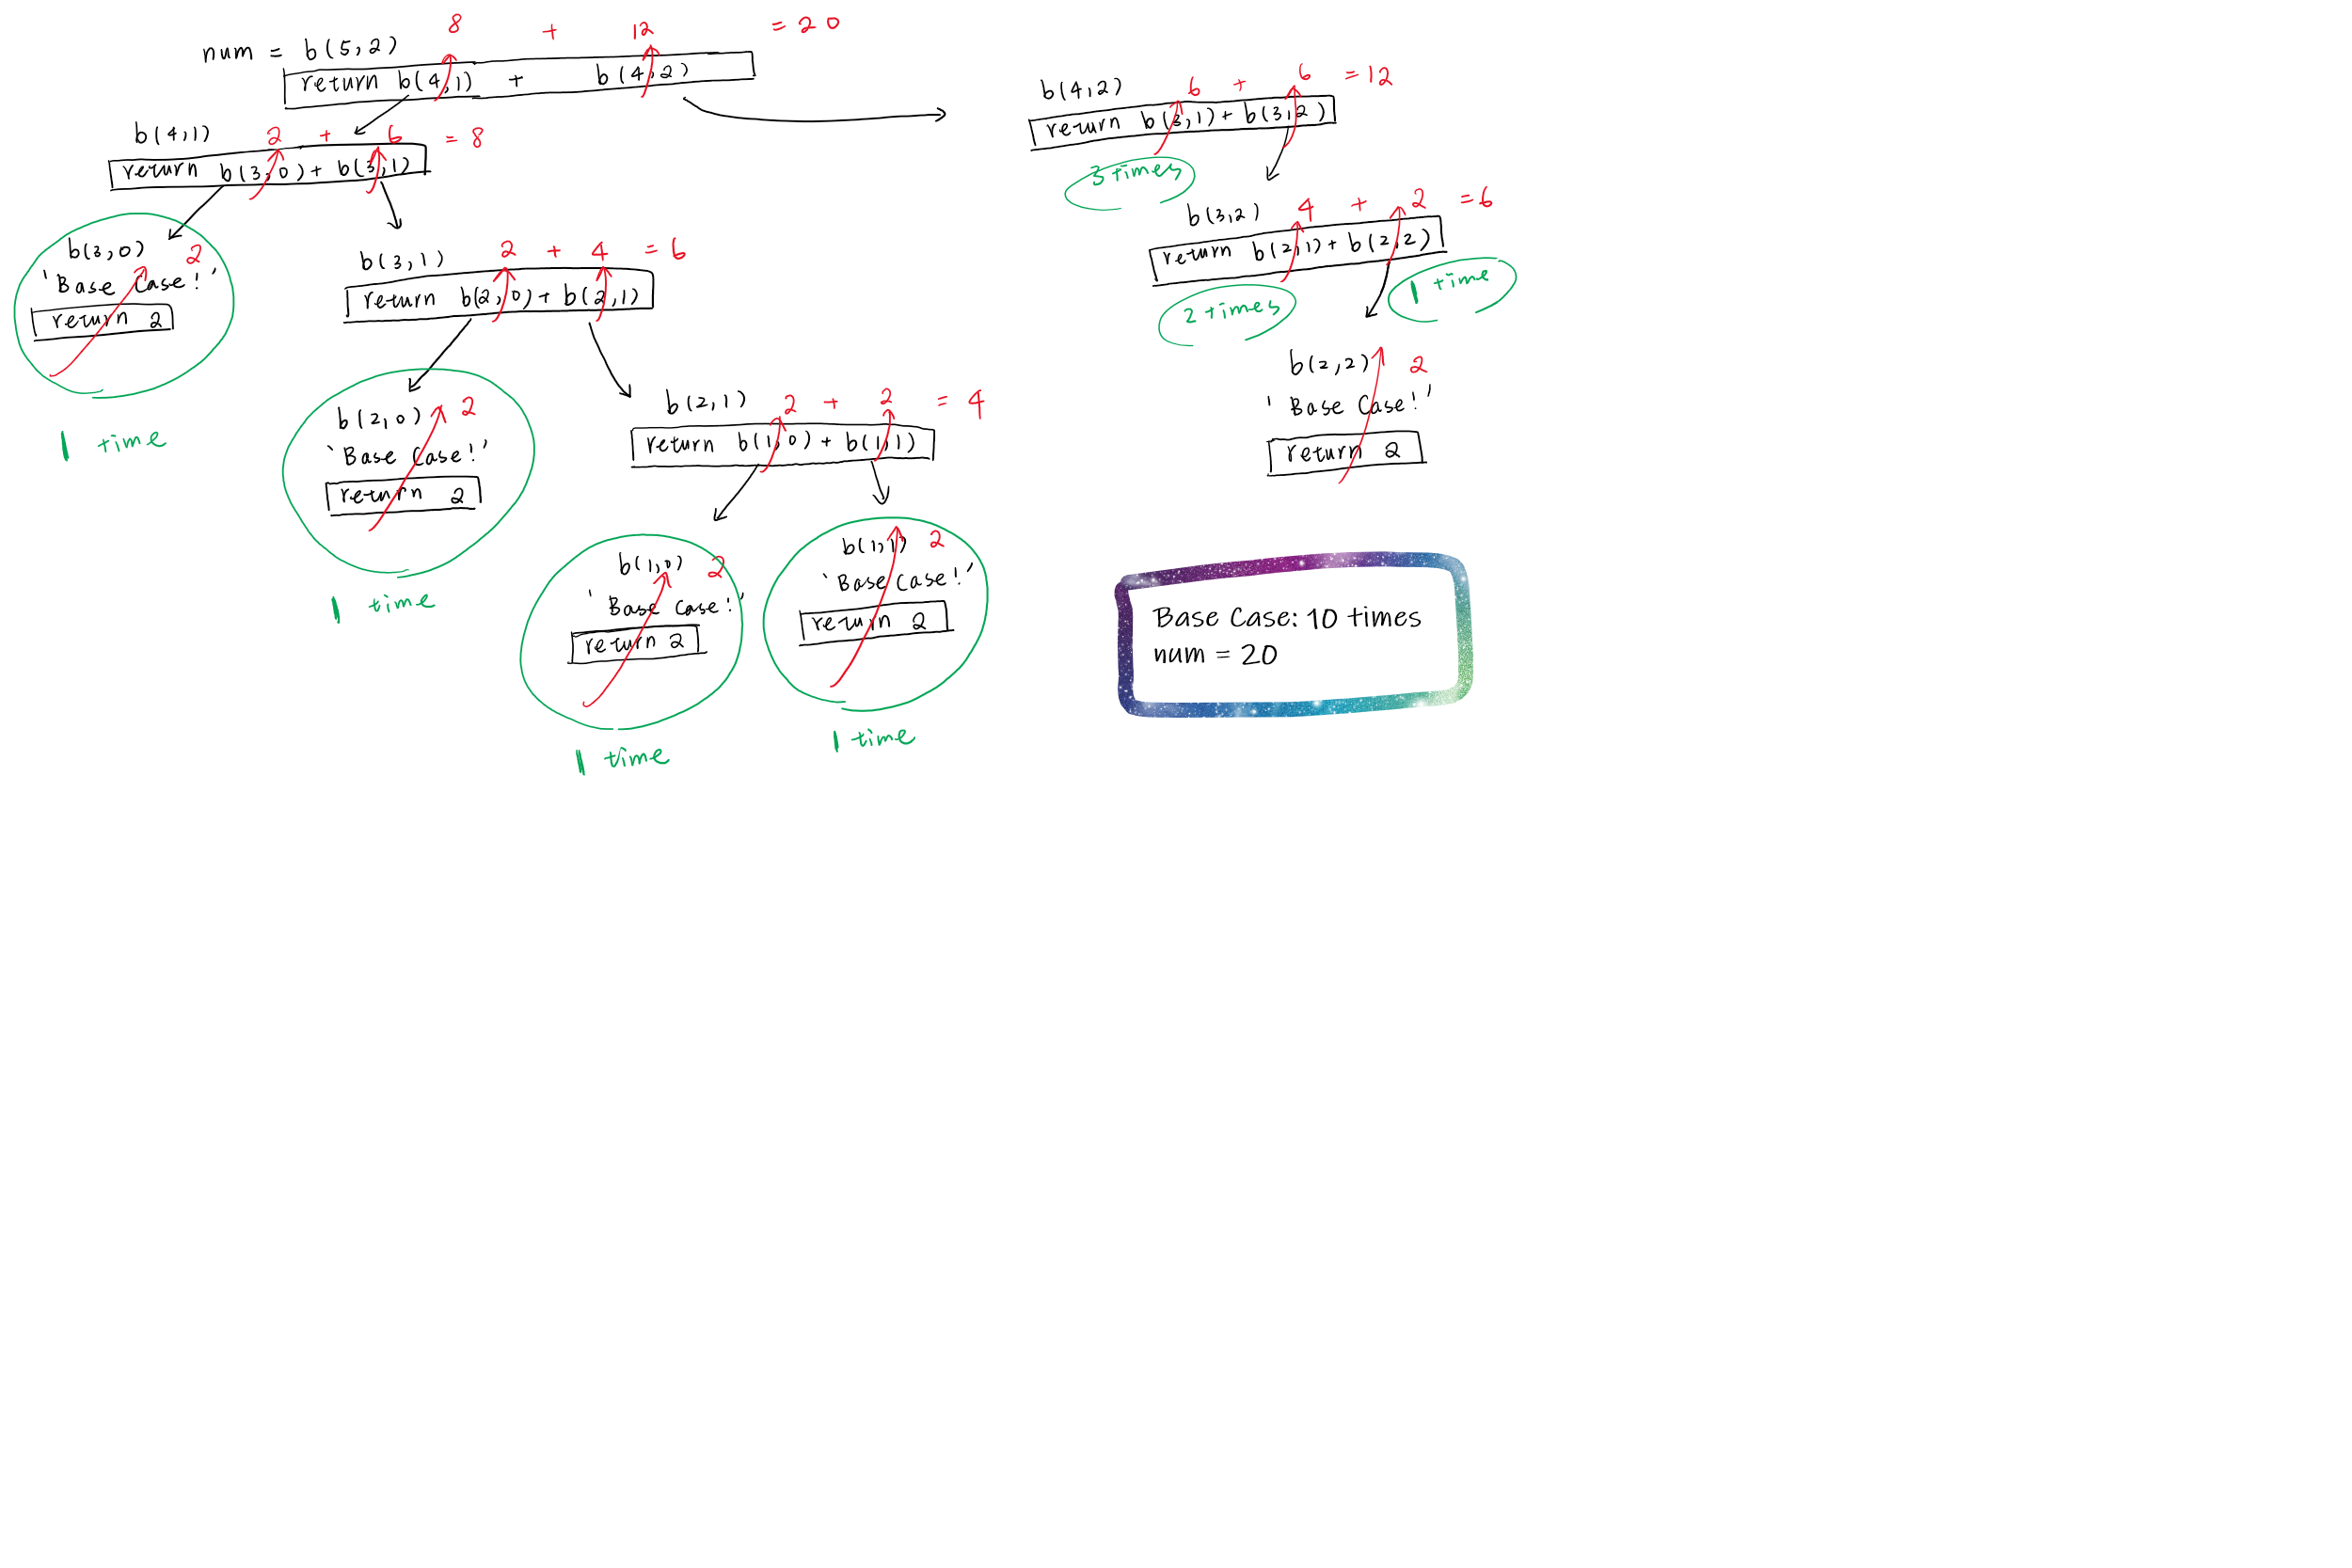 8 + 12 = 20
num = b(5,2)
return b(4,1) + b(4,2)
b(4,1) 2 + 6 = 8
return b(3,0) + b(3,1)
b(3,0) 2
'Base Case!'
return 2
1 time
b(3,1) 2 + 4 = 6
return b(2,0) + b(2,1)
b(2,0) 2
'Base Case!'
return 2
1 time
b(2,1) 2 + 2 = 4
return b(1,0) + b(1,1)
b(1,0) 2
'Base Case!'
return 2
1 time
b(1,1) 2
'Base Case!'
return 2
1 time
b(4,2) 6 + 6 = 12
return b(3,1) + b(3,2)
3 times
b(3,2) 4 + 2 = 6
return b(2,1) + b(2,2)
2 times
1 time
b(2,2) 2
'Base Case!'
return 2
Base Case: 10 times
num = 20